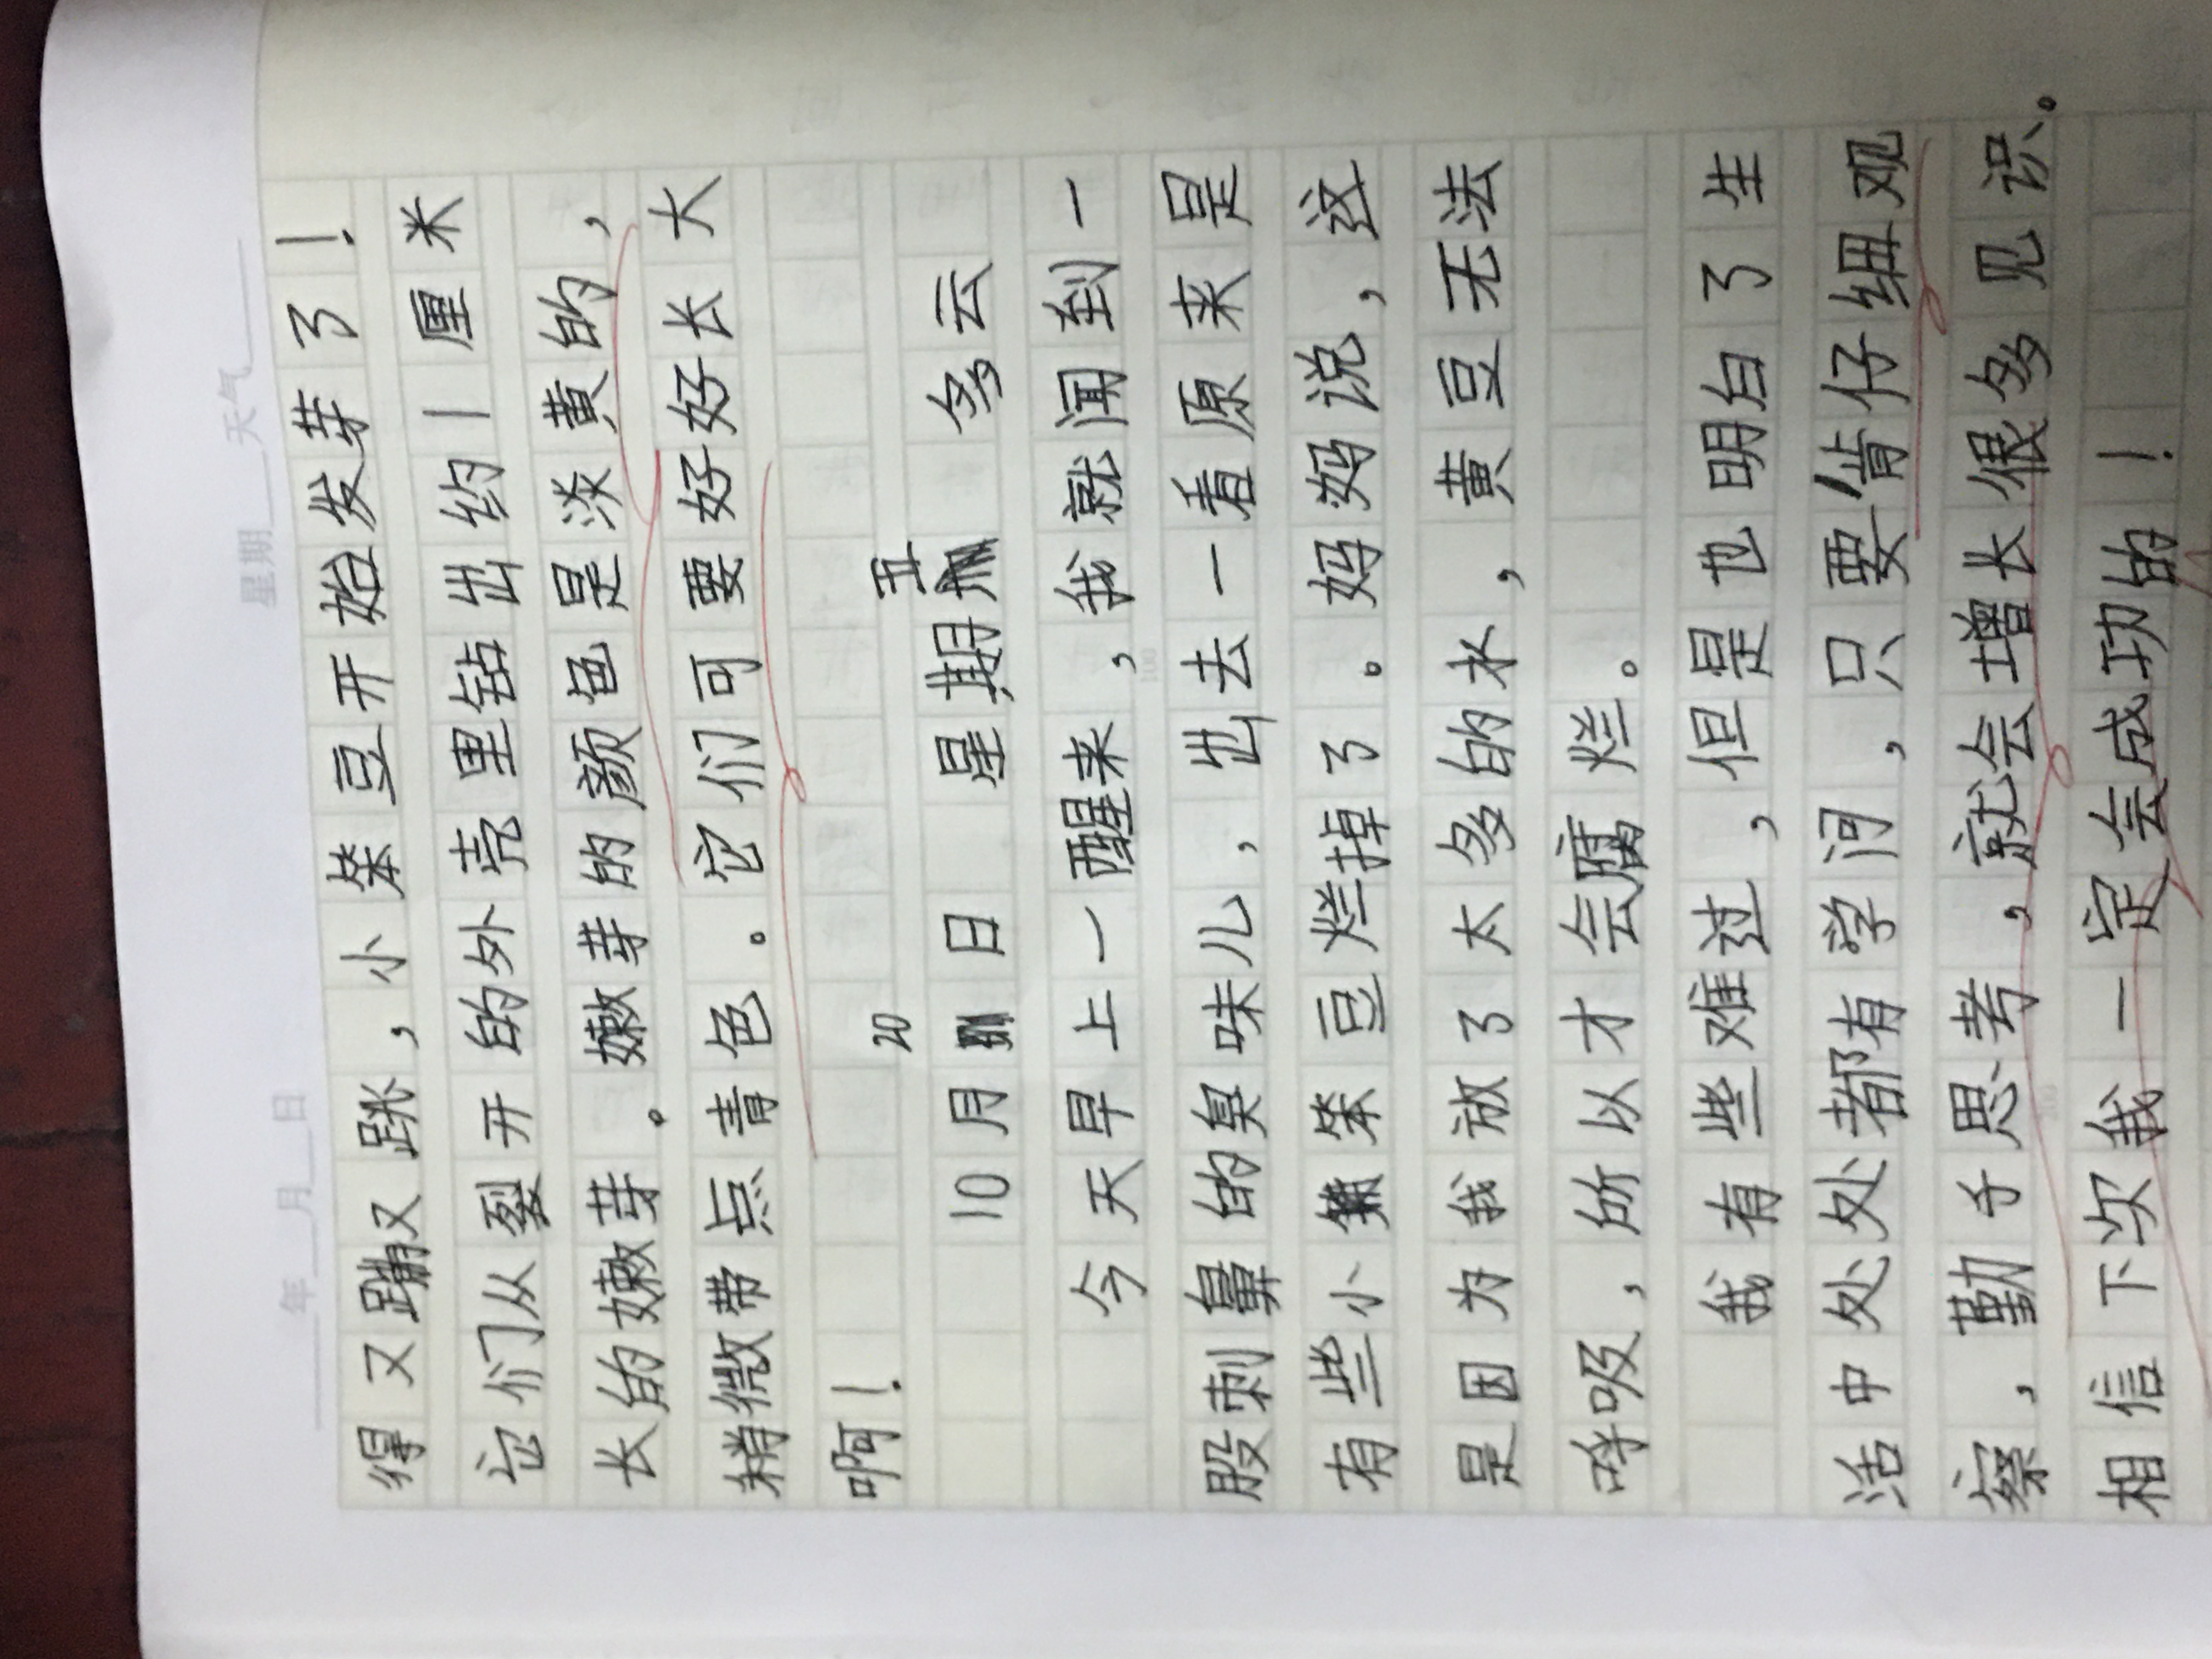 年 月 日 星期 天气
得又蹦又跳，小笨豆开始发芽了！
它们从裂开的外壳里钻出约1厘米
长的嫩芽。嫩芽的颜色是淡黄的，
稍微带点青色。它们可要好好长大
啊！
10月20日 星期五 多云
今天早上一醒来，我就闻到一
股刺鼻的臭味儿，出去一看原来是
有些小笨豆烂掉了。妈妈说，这
是因为我放了太多的水，黄豆无法
呼吸，所以才会腐烂。
我有些难过，但是也明白了生
活中处处都有学问，只要肯仔细观
察，勤于思考，就会增长很多见识。
相信下次我一定会成功的！